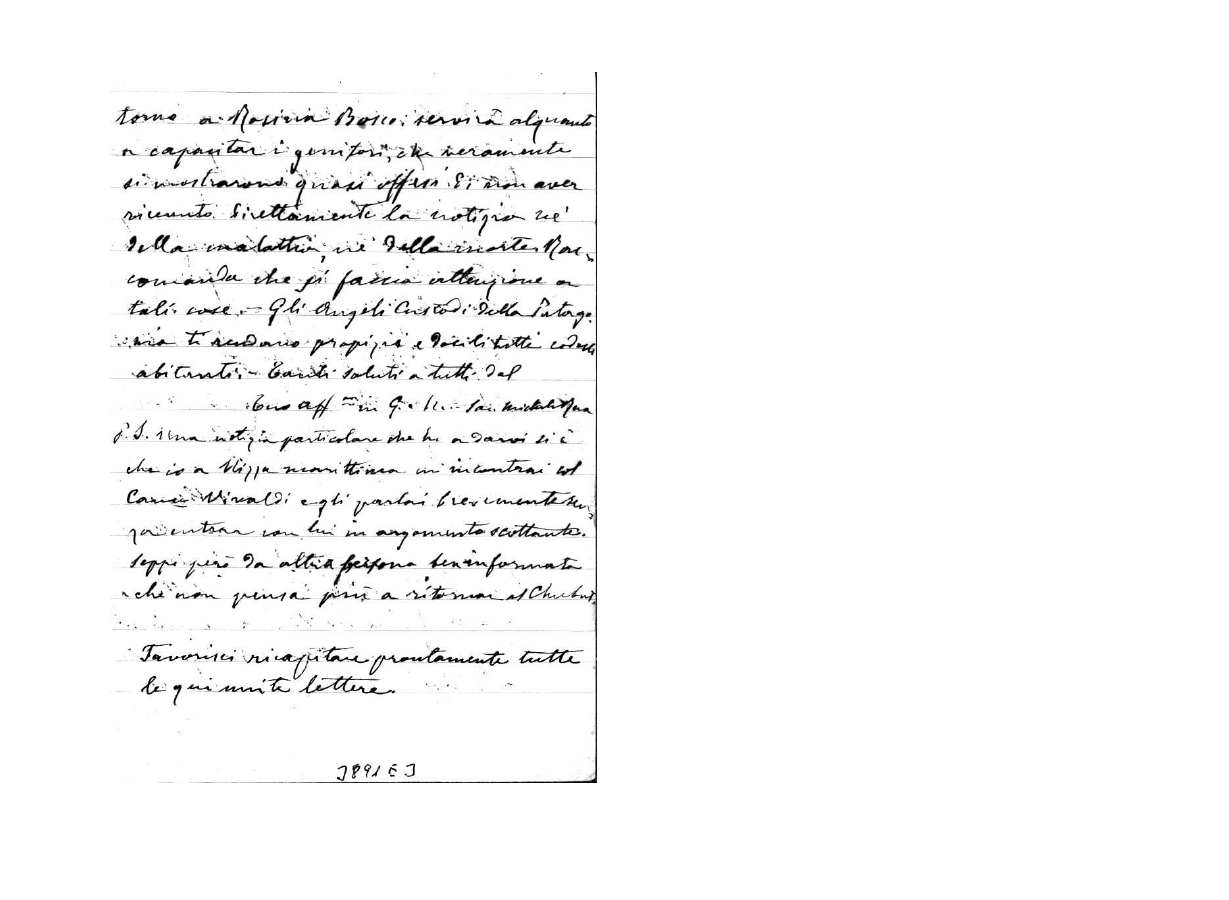 torno a Rosina Bosco: servirà alquanto
a capacitar i genitori, che veramente
si mostrarono quasi offesi di non aver
ricevuto direttamente la notizia nè
della malattia, nè della morte. Rac-
comanda che si faccia attenzione a
tali cose. – Gli Angeli Custodi della Patago-
nia ti rendano propizi e docili tutti codesti
abitanti. – Tanti saluti a tutti dal
Tuo aff in G. e M. Sac. Michele Rua
P.S. Una notizia particolare che ho a darvi si è
che io a Nizza marittima m'incontrai col
Vivaldi e gli parlai brevemente sen-
za entrar con lui in argomento scottante.
Seppi però da altra persona ben informata
che non pensa più a ritornar al Chubut.
Favorisci ricapitare prontamente tutte
le qui unite lettere.
3891 E 3